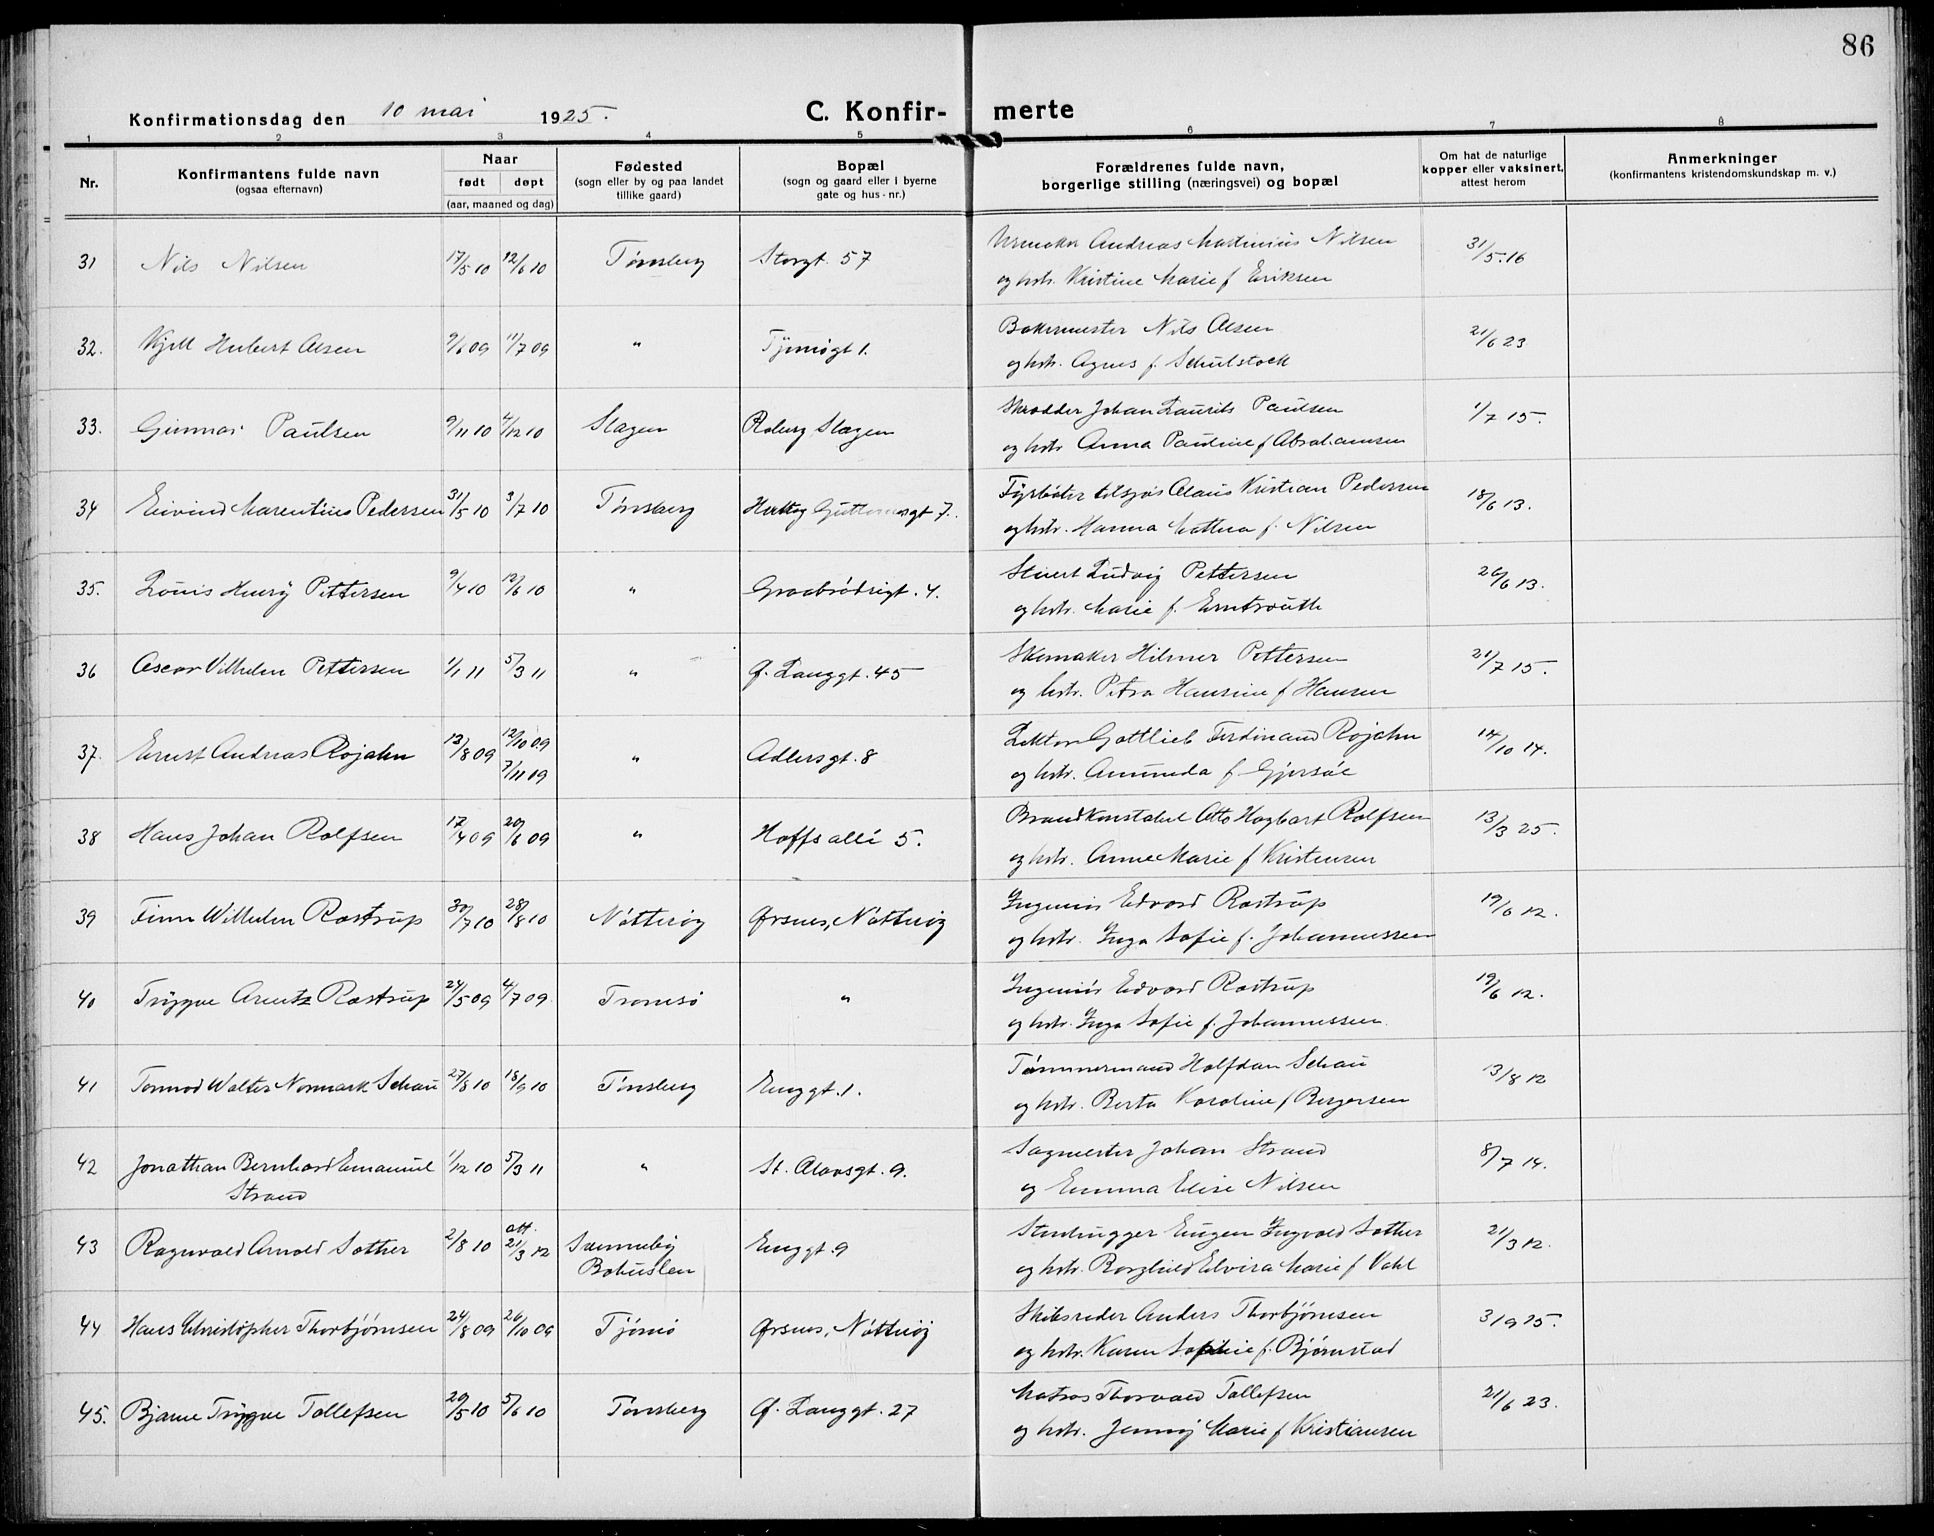 86
Konfirmationsdag den 10 mai 1925. C. Konfir- merte
1 2 3 4 5 6 7 8
Nr. Konfirmantens fulde navn (ogsaa efternavn) Naar født døpt (aar, maaned og dag) Fødested (sogn eller by og paa landet tillike gaard) Bopæl (sogn og gaard eller i byerne gate og hus-nr.) Forældrenes fulde navn, borgerlige stilling (næringsvei) og bopæl Om hat de naturlige kopper eller vaksinert, attest herom Anmerkninger (konfirmantens kristendomskundskap m. v.)
31 Nils Nilsen 17/5 10 12/6 10 Tønsberg Storgt. 57 Urmaker Andreas Martinius Nilsen 31/5.16
og hstr. Kristine Marie f Eriksen
32. Kjell Hubert Olsen 9/6 09 11/7 09 " Tjømøgt 1. Bakermester Nils Olsen 21/6 23
og hstr. Agnes f. Schulstock
33. Gunnar Paulsen 9/11 10 4/12 10 Slagen Roberg Slagen Skrædder Johan Laurits Paulsen 1/7 15.
og hstr Anna Pauline f Abrahamsen
34 Eivind Marentius Pedersen 31/5 10 3/7 10 Tønsberg Hertug Guttormsgt 7. Fyrbøter tilsjøs Olaus Kristian Pedersen 18/6 13.
og hstr. Hanna Mathea f. Nilsen
35. Louis Henry Pettersen 9/4 10 12/6 10 " Graabrødregt. 4. Stuert Ludvig Pettersen 26/6 13.
og hstr. Marie f. Erntrouth
36 Oscar Vilhelm Pettersen 1/1 11 5/3 11 " Ø. Langgt. 45 Skomaker Hilmer Pettersen 21/7 15.
og hstr. Petra Hansine f Hansen
37. Ernst Andreas Rojahn 13/8 09 12/10 09 7/11 09 " Adlersgt. 8 Lektor Gottlieb Ferdinand Rojahn 14/10 14.
og hstr. Amunda f. Gjersøe
38 Hans Johan Rolfsen 17/4 09 20/6 09 " Hoffs allé 5. Brandkonstabel Otto Hagbart Rolfsen 13/3 25.
og hstr. Anne Marie f Kristensen
39 Finn Wilhelm Rostrup 30/7 10 28/8 10 Nøtterøy Ørsnes, Nøtterøy Ingeniør Edvard Rostrup 19/6 12.
og hstr. Inga Sofie f. Johannessen
40 Trygve Arentz Rostrup 24/5 09 4/7 09. Tromsø " Ingeniør Edvard Rostrup 19/6 12.
og hstr. Inga Sofie f. Johannessen
41 Tormod Walter Normark Schau 27/8 10 18/9 10 Tønsberg Enggt. 1. Tømmermand Halfdan Schau 13/8 12
og hstr. Berta Karoline f Bergersen
42 Jonathan Bernhard Emanuel 1/12 10 5/3 11 " St. Olavsgt. 9. Sagmester Johan Strand 8/7 14.
Strand og Emma Elise Nilsen
43 Ragnvald Arnold Sother 2/8 10 att. 21/3 12 Sannebÿ Enggt. 9 Stenhugger Eugen Ingvald Sother 21/3 12.
Bohuslen og hstr. Borghild Elvira Marie f Vahl
44 Hans Christopher Thorbjørnsen 24/8 09 26/10 09 Tjømø Ørsnes, Nøtterøy Skibsreder Anders Thorbjørnsen 3/9 25.
og hstr. Karen Sophie f. Bjørnstad
45. Bjarne Trygve Tollefsen 20/5 10 5/6 10 Tønsberg Ø. Langgt. 27 Matros Thorvald Tollefsen 21/6 23.
og hstr. Jenny Marie f Kristiansen